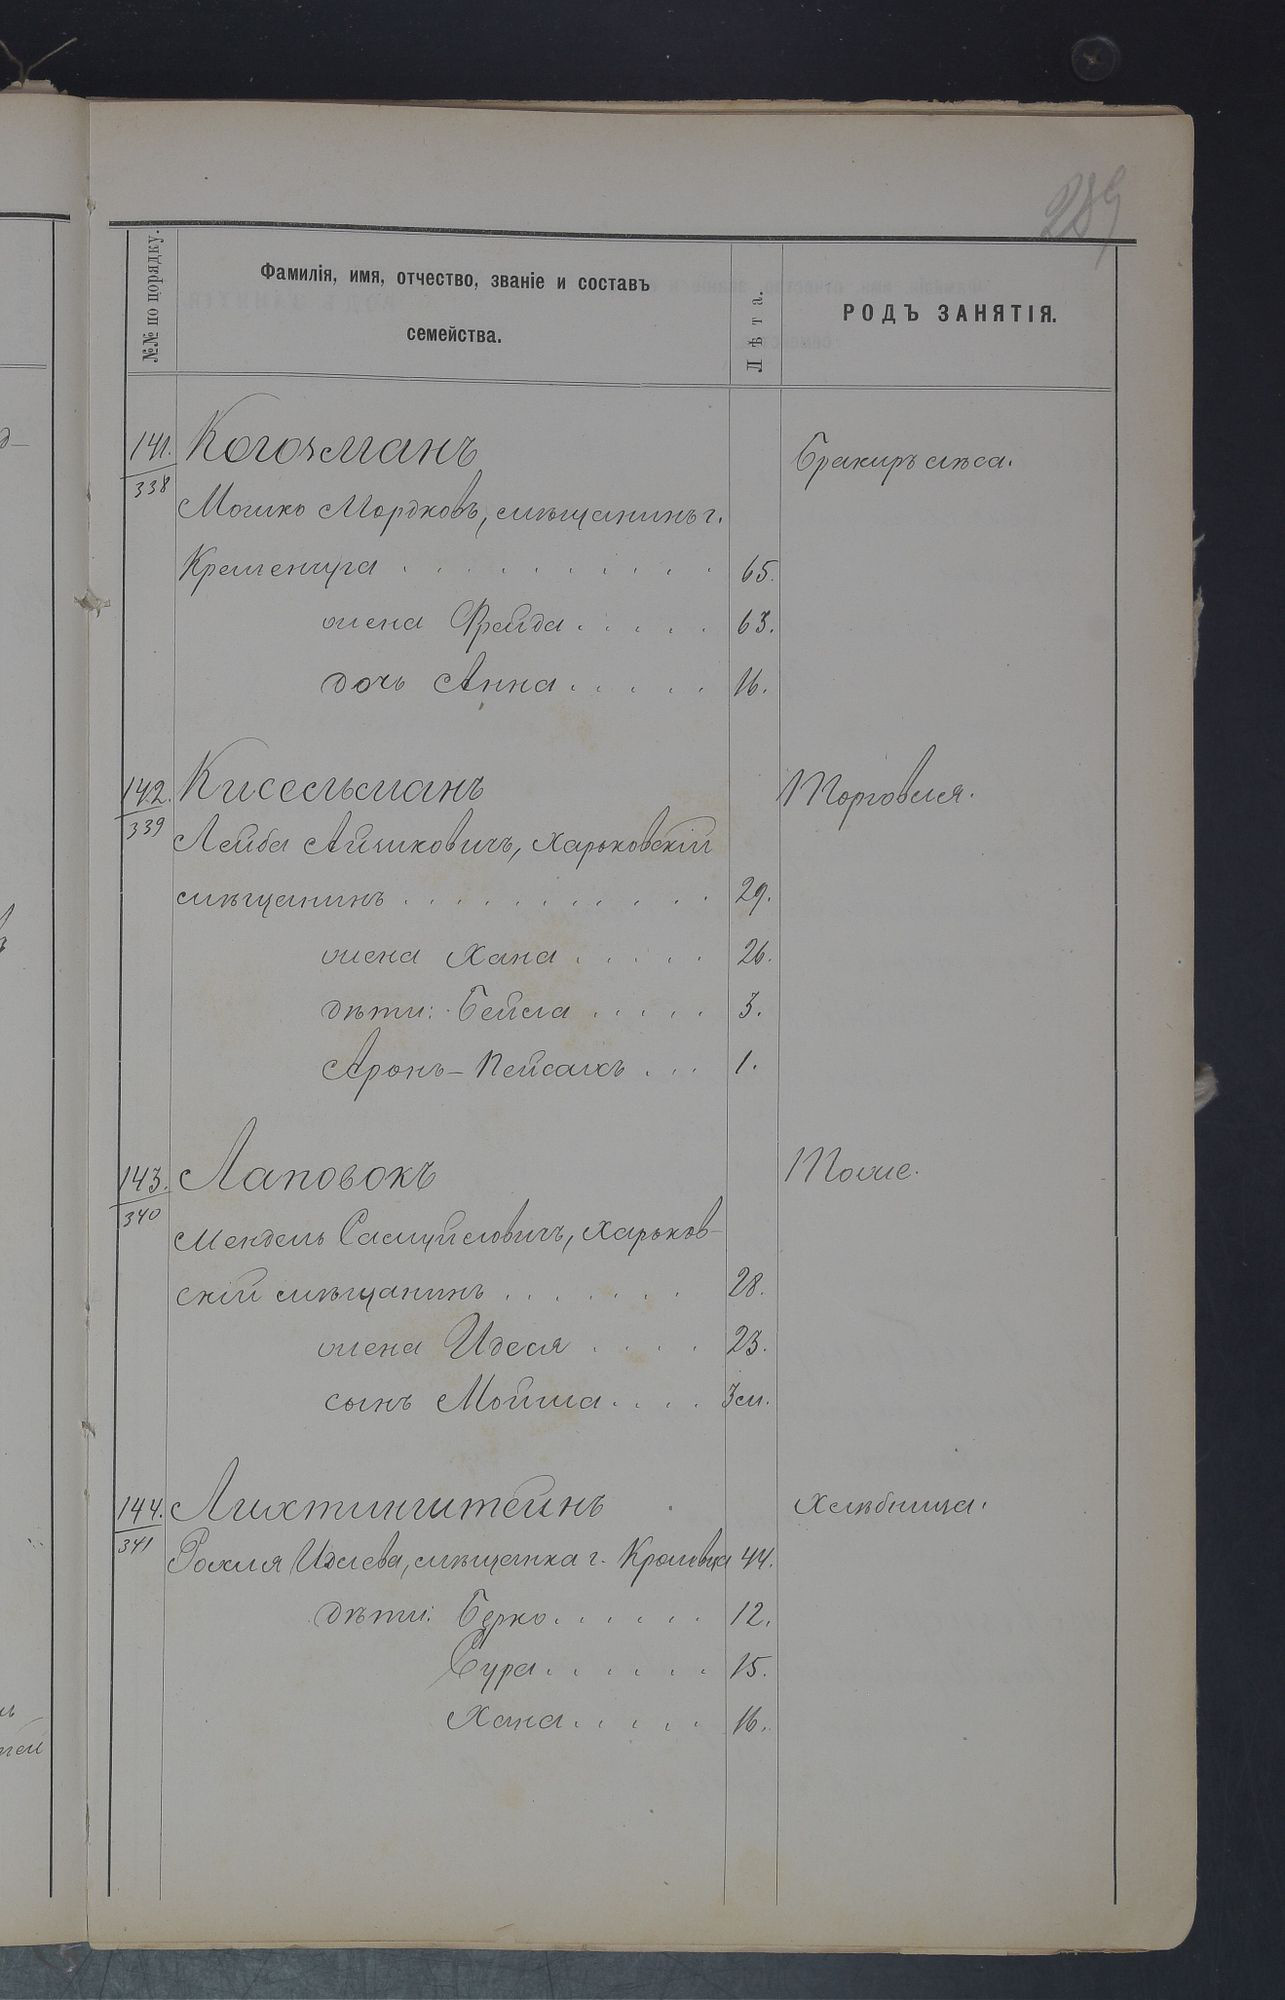 289
№№ по порядку.
Фамилія, имя, отчество, званіе и составъ
семейства.
Лѣта.
РОДЪ ЗАНЯТІЯ.
141. Когочманъ Бракиръ лѣса.
338
Мошко Мордковъ, мѣщанинъ г.
Кременчуга . . . . . . . . . . 65.
жена Фрейда . . . . . 63.
дочь Анна . . . . . 16.
142. Кисельманъ Торговля.
339
Лейба Айзиковичъ, Харьковскій
мѣщанинъ . . . . . . . . . . . 29.
жена Хана . . . . . 26.
дѣти: Бейла . . . . . 3.
Аронъ-Пейсахъ . . . 1.
143. Лаповокъ Тоже.
340
Мендель Самуйловичъ, Харьков-
скій мѣщанинъ . . . . . . . 28.
жена Идеся . . . . 23.
сынъ Мойша . . . . 3 м.
144. Лихтинштейнъ Хлѣбница.
341
Рохля Идлева, мѣщанка г. 44.
дѣти: Берко . . . . . . 12.
Сура . . . . . . 15.
Хана . . . . . 16.